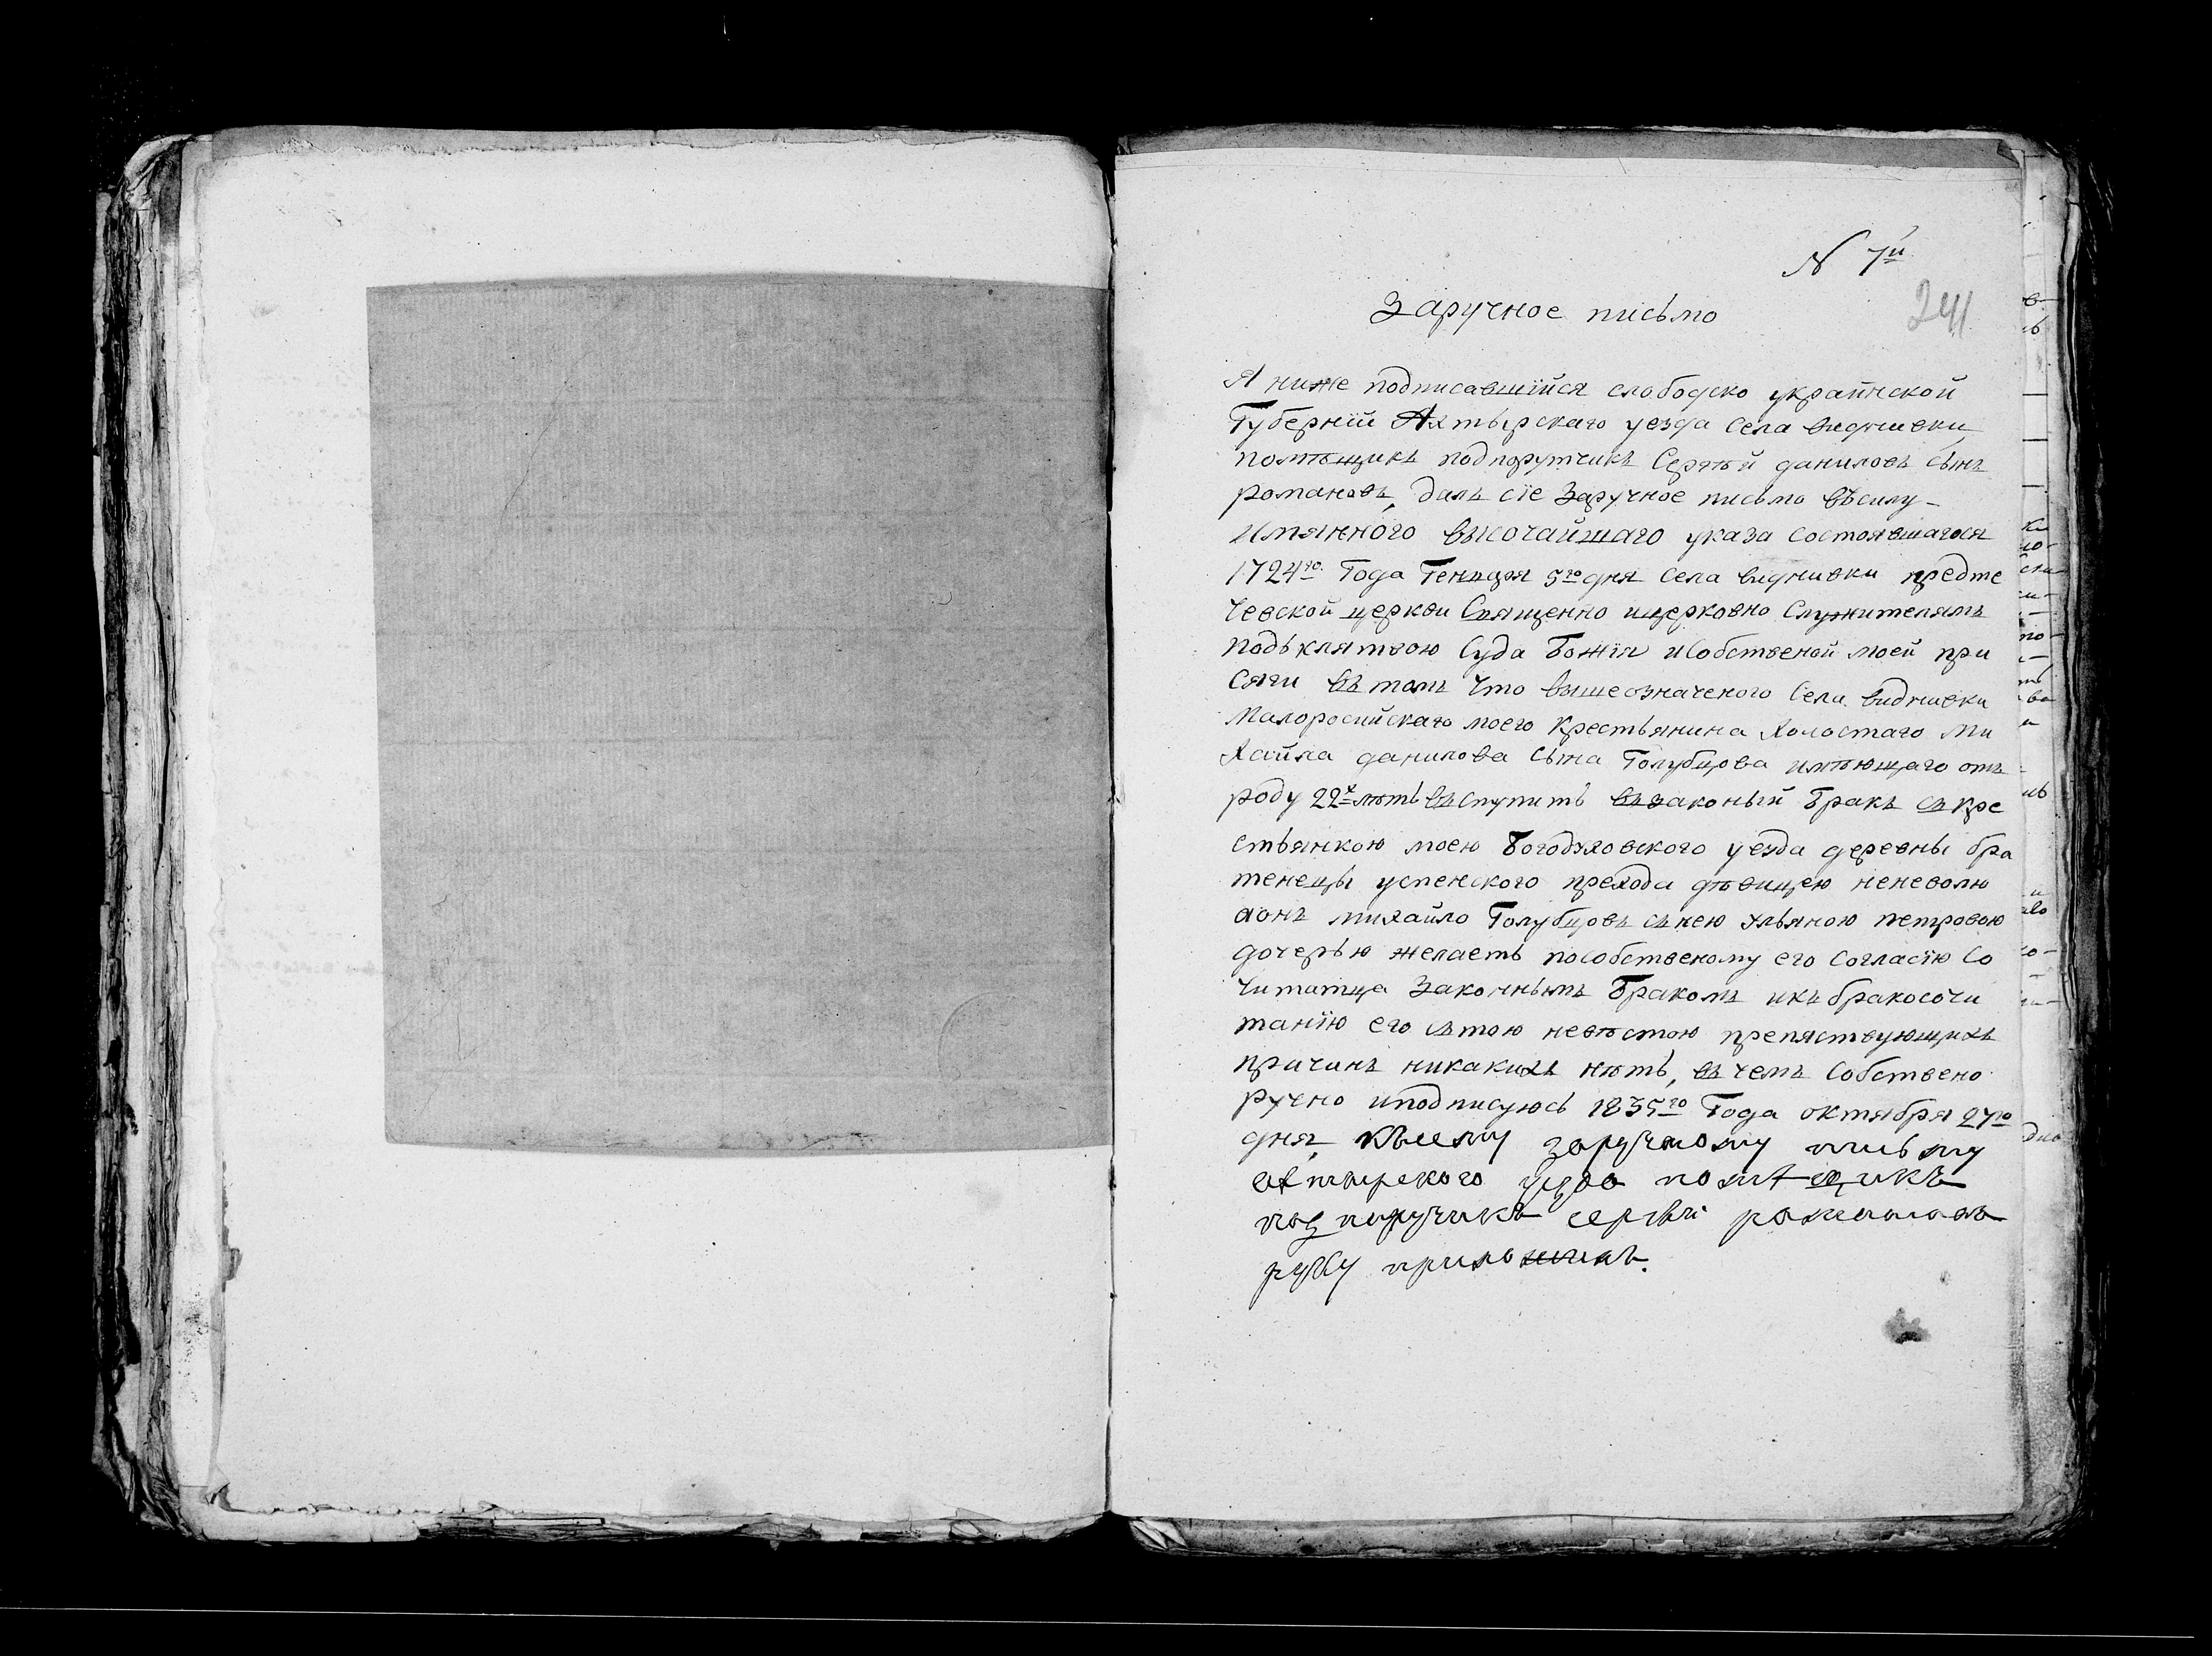 N 7й
241
Заручное письмо
Я ниже подписавшійся слободско украинской
Губерніи Ахтырскаго уезда Села видниевки
помѣщикъ подпорутчикъ Сергѣй даниловъ сынъ
романовъ, далъ сіе Заручное письмо въсилу
Имяннаго высочайшаго указа состоявшагося
1724го Года Генваря 5го дня Села видниевки предте
чевской церкви Священно ицерковно Служителямъ
подъ клятвою Суда Божія иСобственой моей при
сяги въ томъ что вышеозначеного Села видниевки
Малоросийскаго моего Крестьянина Холостаго Ми
Хайла данилова Сына Голубцова имѣющаго отъ
роду 22х лѣтъ въступить възаконый бракъ съ Кре
стьянкою моею Богодуховского уезда деревны бра
тенецы успенского прехода дѣвицею неневолю
аонъ михайло Голубцовъ съ нею Ульяною петровою
дочерью желаетъ пособственому его Согласію Со
читатца Законнымъ Бракомъ икъ бракосочи
танію его стою невѣстою препяствующихъ
причинъ никакихъ нѣтъ, въ чемъ Собствено
ручно иподписуюсь 1835го Года октября 27го
дня, Ксему заручному письму
ахтырского уезда помѣщикъ
под поручикъ сергѣй романовъ
руку приложилъ.